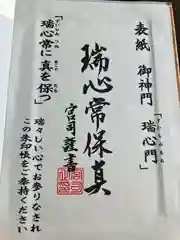 表紙 御神門 「瑞心門」
ずいしんもん
瑞心常保真
宮司謹書
「瑞心常に真を保つ」
ずいしんつね まこと たも
瑞々しい心でお参りなされ
この朱印帳をご奉持ください